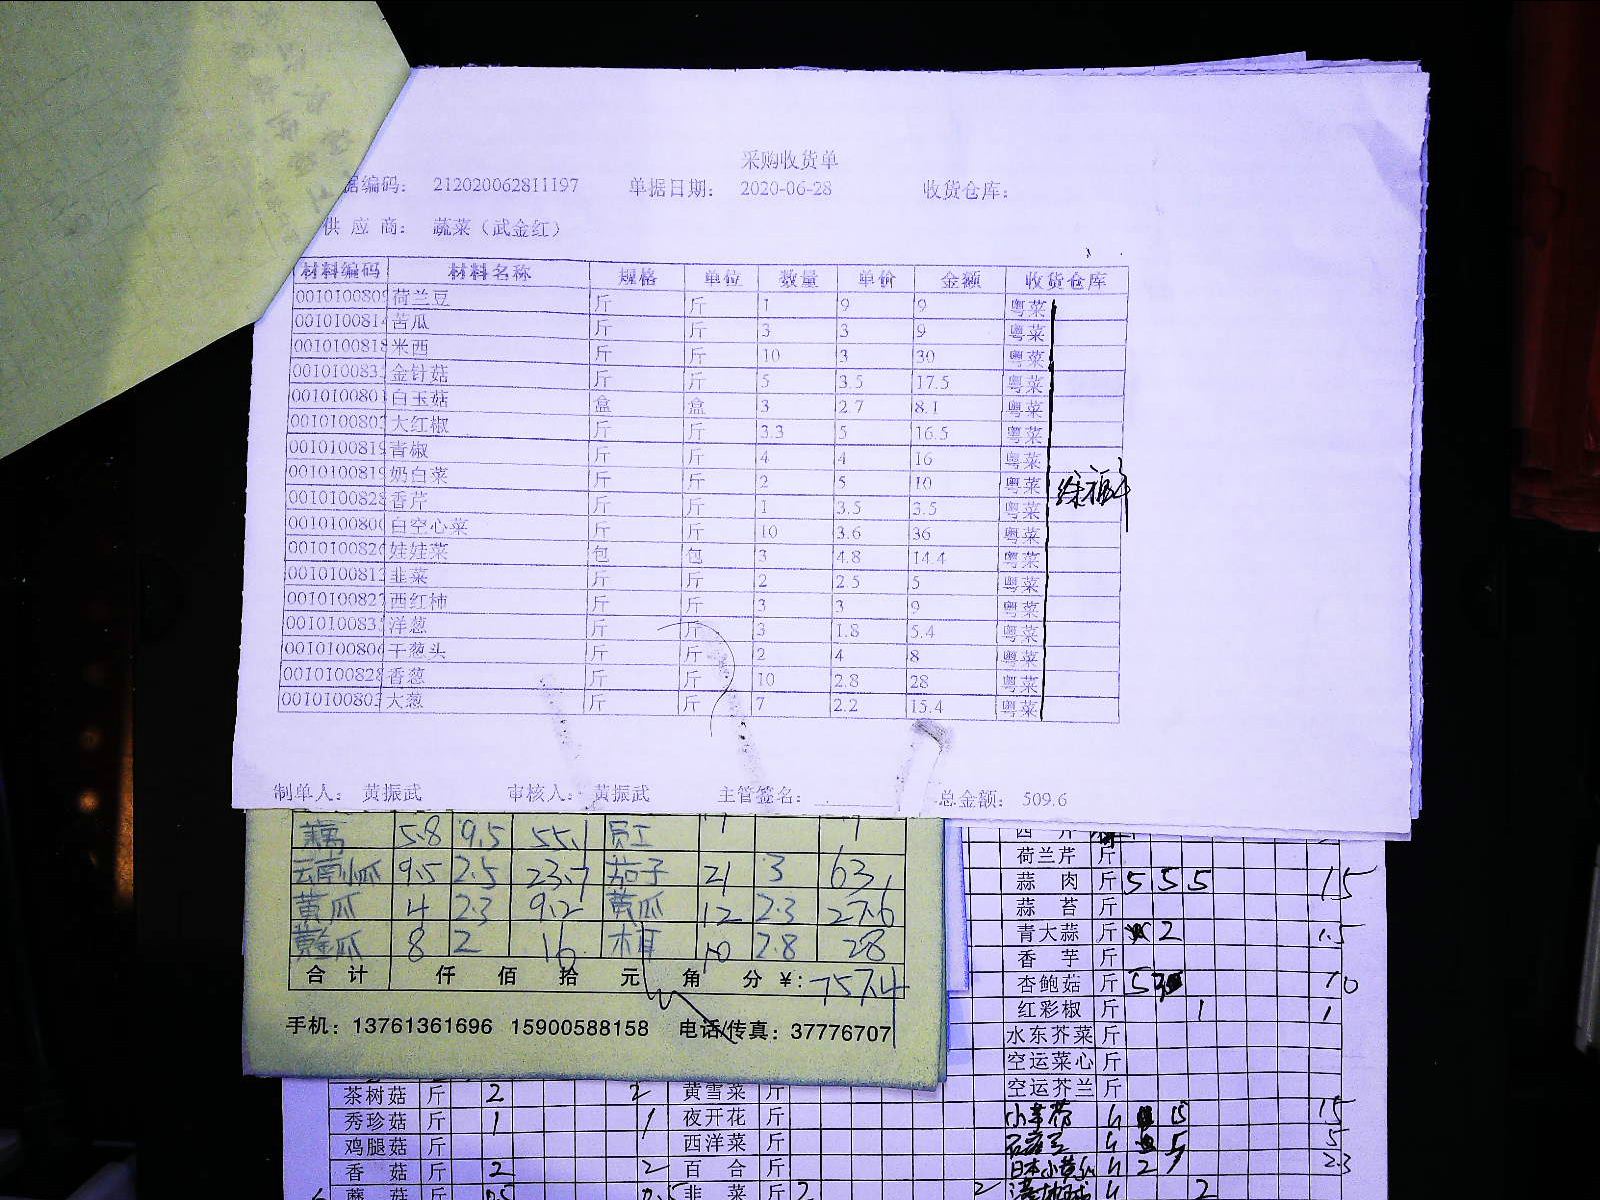 采购收货单
据编码： 212020062811197 单据日期： 2020-06-28 收货仓库：
供 应 商： 蔬菜（武金红）
材料编码 材料名称 规格 单位 数量 单价 金额 收货仓库
0010100809 荷兰豆 斤 斤 1 9 9 粤菜
0010100814 苦瓜 斤 斤 3 3 9 粤菜
0010100818 米西 斤 斤 10 3 30 粤菜
001010083 金针菇 斤 斤 5 3.5 17.5 粤菜
001010080 白玉菇 盒 盒 3 2.7 8.1 粤菜
001010080 大红椒 斤 斤 3.3 5 16.5 粤菜
0010100819 青椒 斤 斤 4 4 16 粤菜
0010100819 奶白菜 斤 斤 2 5 10 粤菜
0010100828 香芹 斤 斤 1 3.5 3.5 粤菜
001010080 白空心菜 斤 斤 10 3.6 36 粤菜
001010082 娃娃菜 包 包 3 4.8 14.4 粤菜
001010081 韭菜 斤 斤 2 2.5 5 粤菜
001010082 西红柿 斤 斤 3 3 9 粤菜
001010083 洋葱 斤 斤 3 1.8 5.4 粤菜
001010080 干葱头 斤 斤 2 4 8 粤菜
0010100828 香葱 斤 斤 10 2.8 28 粤菜
001010080 大葱 斤 斤 7 2.2 15.4 粤菜
制单人： 黄振武 审核人： 黄振武 主管签名： 总金额： 509.6
藕 5.8 9.5 55.1 员工
云南小瓜 9.5 2.5 23.7 茄子 21 3 63
黄瓜 4 2.3 9.2 黄瓜 12 2.3 27.6
黄金瓜 8 2 16 木耳 10 2.8 28
合 计 仟 佰 拾 元 角 分 ¥: 757.4
手机：13761361696 15900588158 电话/传真：37776707
西 芹
荷兰芹 斤
蒜 肉 斤 5 5 5 15
蒜 苔 斤
青大蒜 斤 2 1.5
香 芋 斤
杏鲍菇 斤 5 10
红彩椒 斤 1 1
水东芥菜 斤
空运菜心 斤
空运芥兰 斤
茶树菇 斤 2 2 黄雪菜 斤
秀珍菇 斤 1 1 夜开花 斤 15 15
鸡腿菇 斤 西洋菜 斤 5 5
香 菇 斤 2 2 百 合 斤 日本小黄瓜 2 2.3
蘑 菇 斤 0.5 0.5 韭 菜 斤 2 2 2